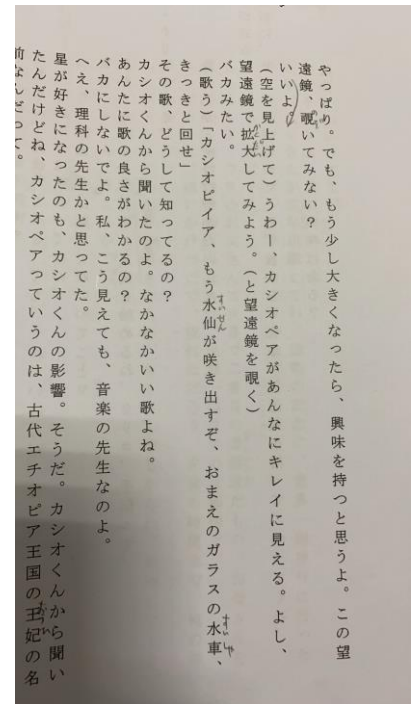 やっぱり。でも、もう少し大きくなったら、興味を持つと思うよ。この望
遠鏡、覗いてみない？
いいよ。
（空を見上げて）うわー、カシオペアがあんなにキレイに見える。よし、
望遠鏡で拡大してみよう。（と望遠鏡を覗く）
バカみたい。
（歌う）「カシオピイア、もう水仙が咲き出すぞ、おまえのガラスの水車、
きっきと回せ」
その歌、どうして知ってるの？
カシオくんから聞いたのよ。なかなかいい歌よね。
あんたに歌の良さがわかるの？
バカにしないでよ。私、こう見えても、音楽の先生なのよ。
へえ、理科の先生かと思ってた。
星が好きになったのも、カシオくんの影響。そうだ。カシオくんから聞い
たんだけどね、カシオペアっていうのは、古代エチオピア王国の王妃の名
前なんだって。